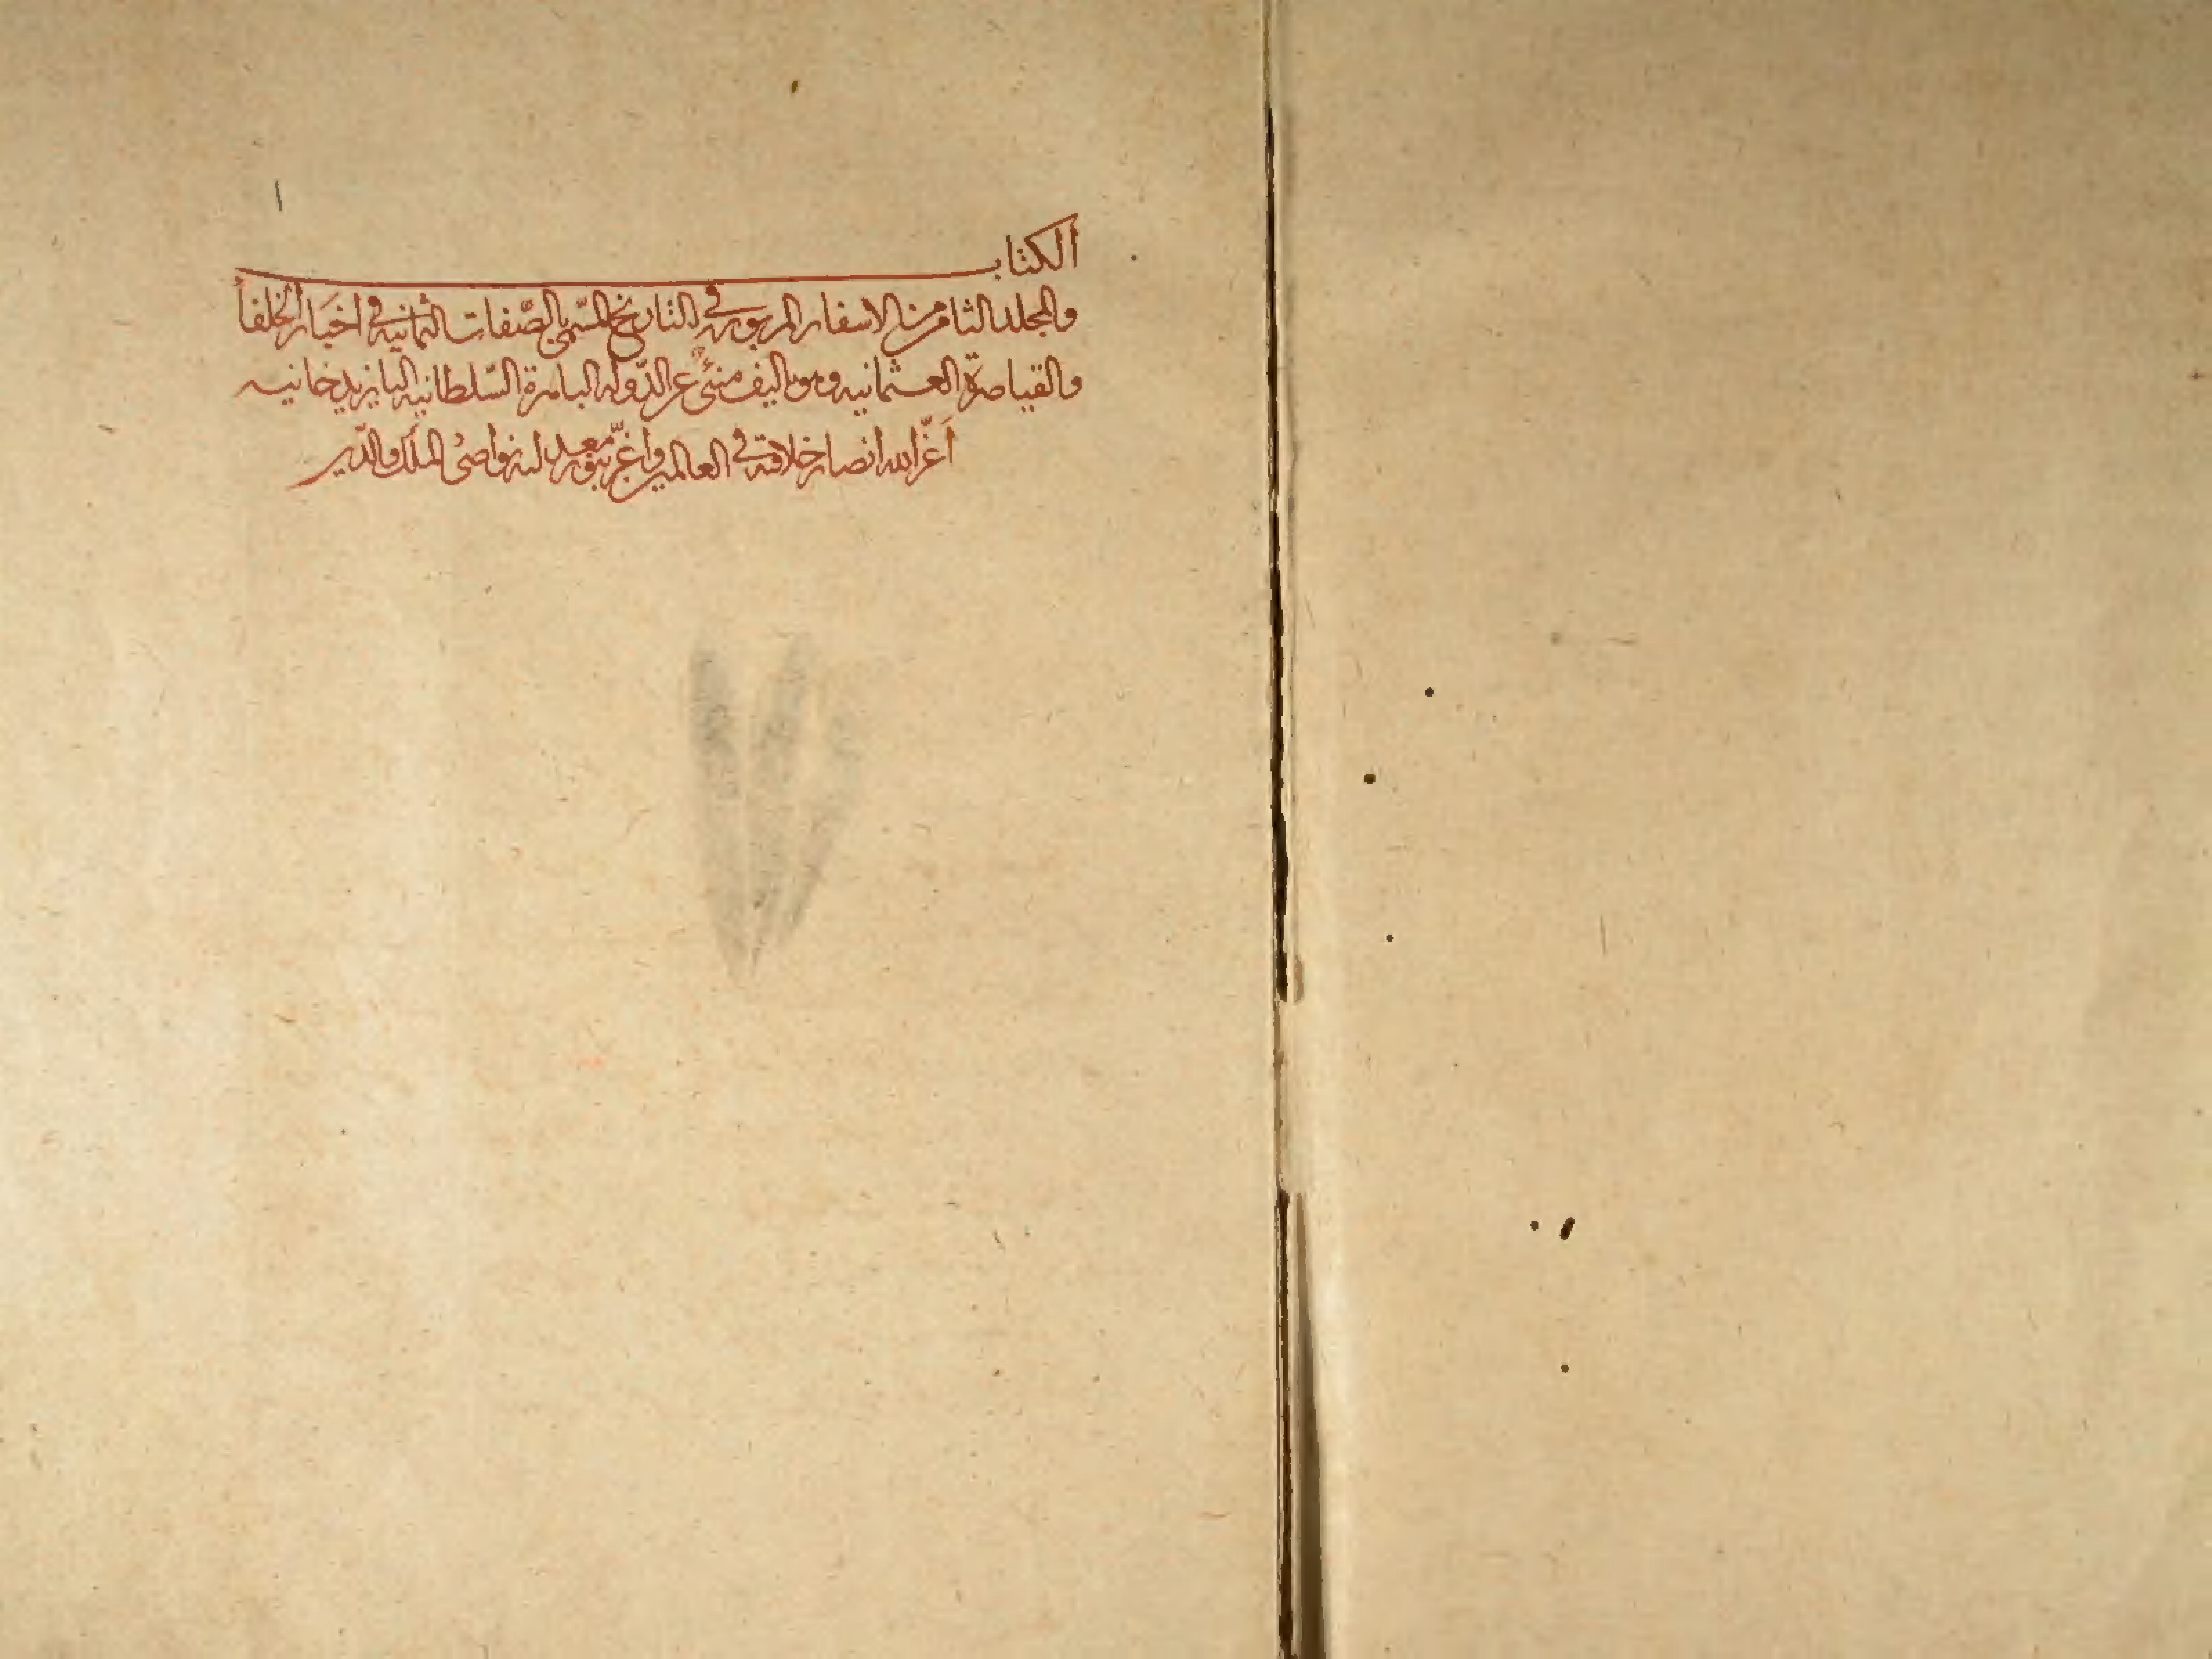 ١
الكتاب
والمجلد الثامن من الاسفار المزبوره فى التاريخ المسمى بالصّفات الثمانيه فى اخبار الخلفأ
والقياصرة العثمانيه وهو تاليف منبئ عن الدّولة الباهرة السّلطانيه البايزيدخانيه
اعزّ الله انصار خلافته فى العالمين واغرّ بنور معدلته نواصى الملك والدّين